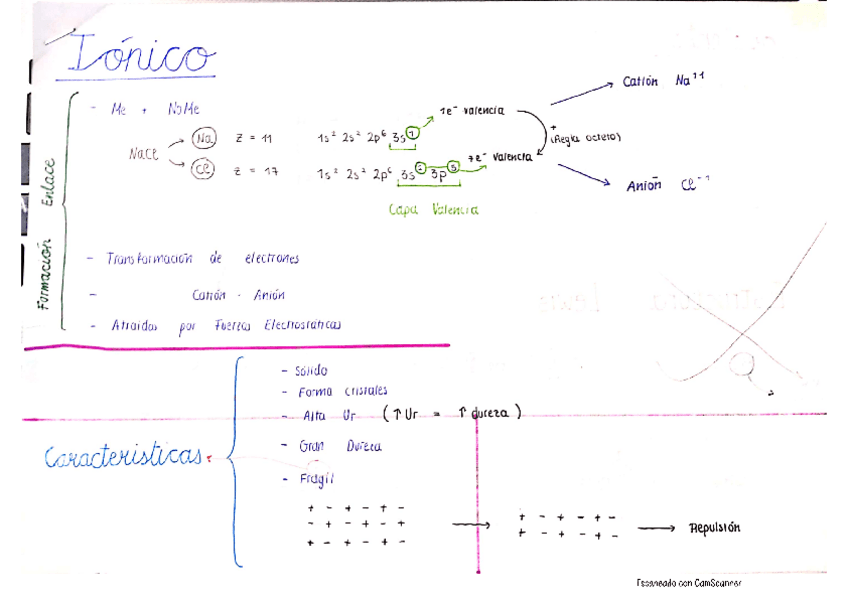 Iónico
Formación Enlace
- Me + NoMe
NaCl
Na Z = 11 1s² 2s² 2p⁶ 3s¹ 1e⁻ valencia
Cl Z = 17 1s² 2s² 2p⁶ 3s² 3p⁵ 7e⁻ valencia
Capa Valencia
(Regla octeto)
Catión Na⁺¹
Anión Cl⁻¹
- Transformación de electrones
- Catión - Anión
- Atraidos por Fuerzas Electrostáticas
Características
- Sólido
- Forma cristales
- Alta Ur (↑ Ur = ↑ dureza)
- Gran Dureza
- Frágil
+ - + - + -
- + - + - +
+ - + - + -
+ - + - + -
+ - + - + -
Repulsión
Escaneado con CamScanner